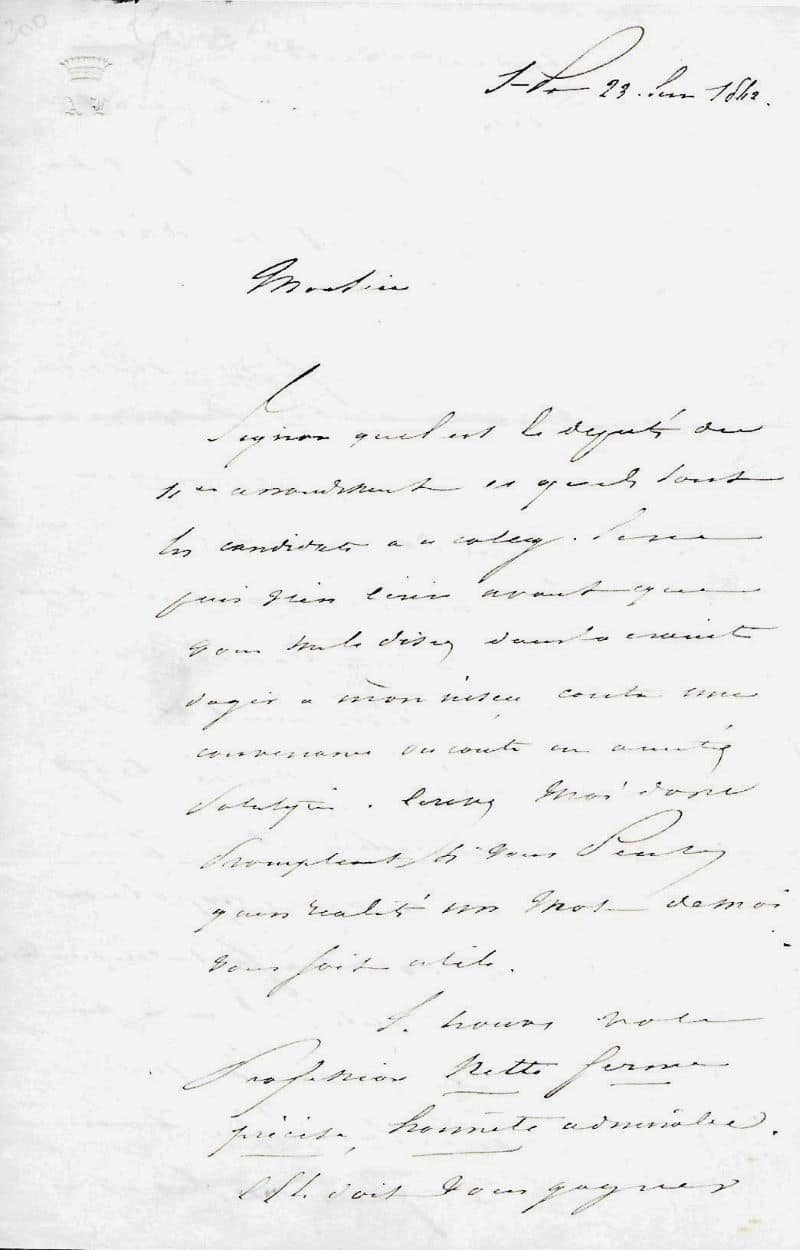 300
A L
St-P 23. Juin 1842.
Monsieur
J'ignore quel est le député du
11e arrondissement et quels sont
les candidats a ce college. Je ne
puis rien ecrire avant que
vous me le disiez dans la crainte
d'agir a mon insçu contre une
convenance ou contre une amitié
politique. Ecrivez moi donc
promptement si vous pensez
qu'en realité un mot de moi
vous soit utile.
Je trouve votre
Profession nette ferme
précise, honnête admirable.
Elle doit vous gagner